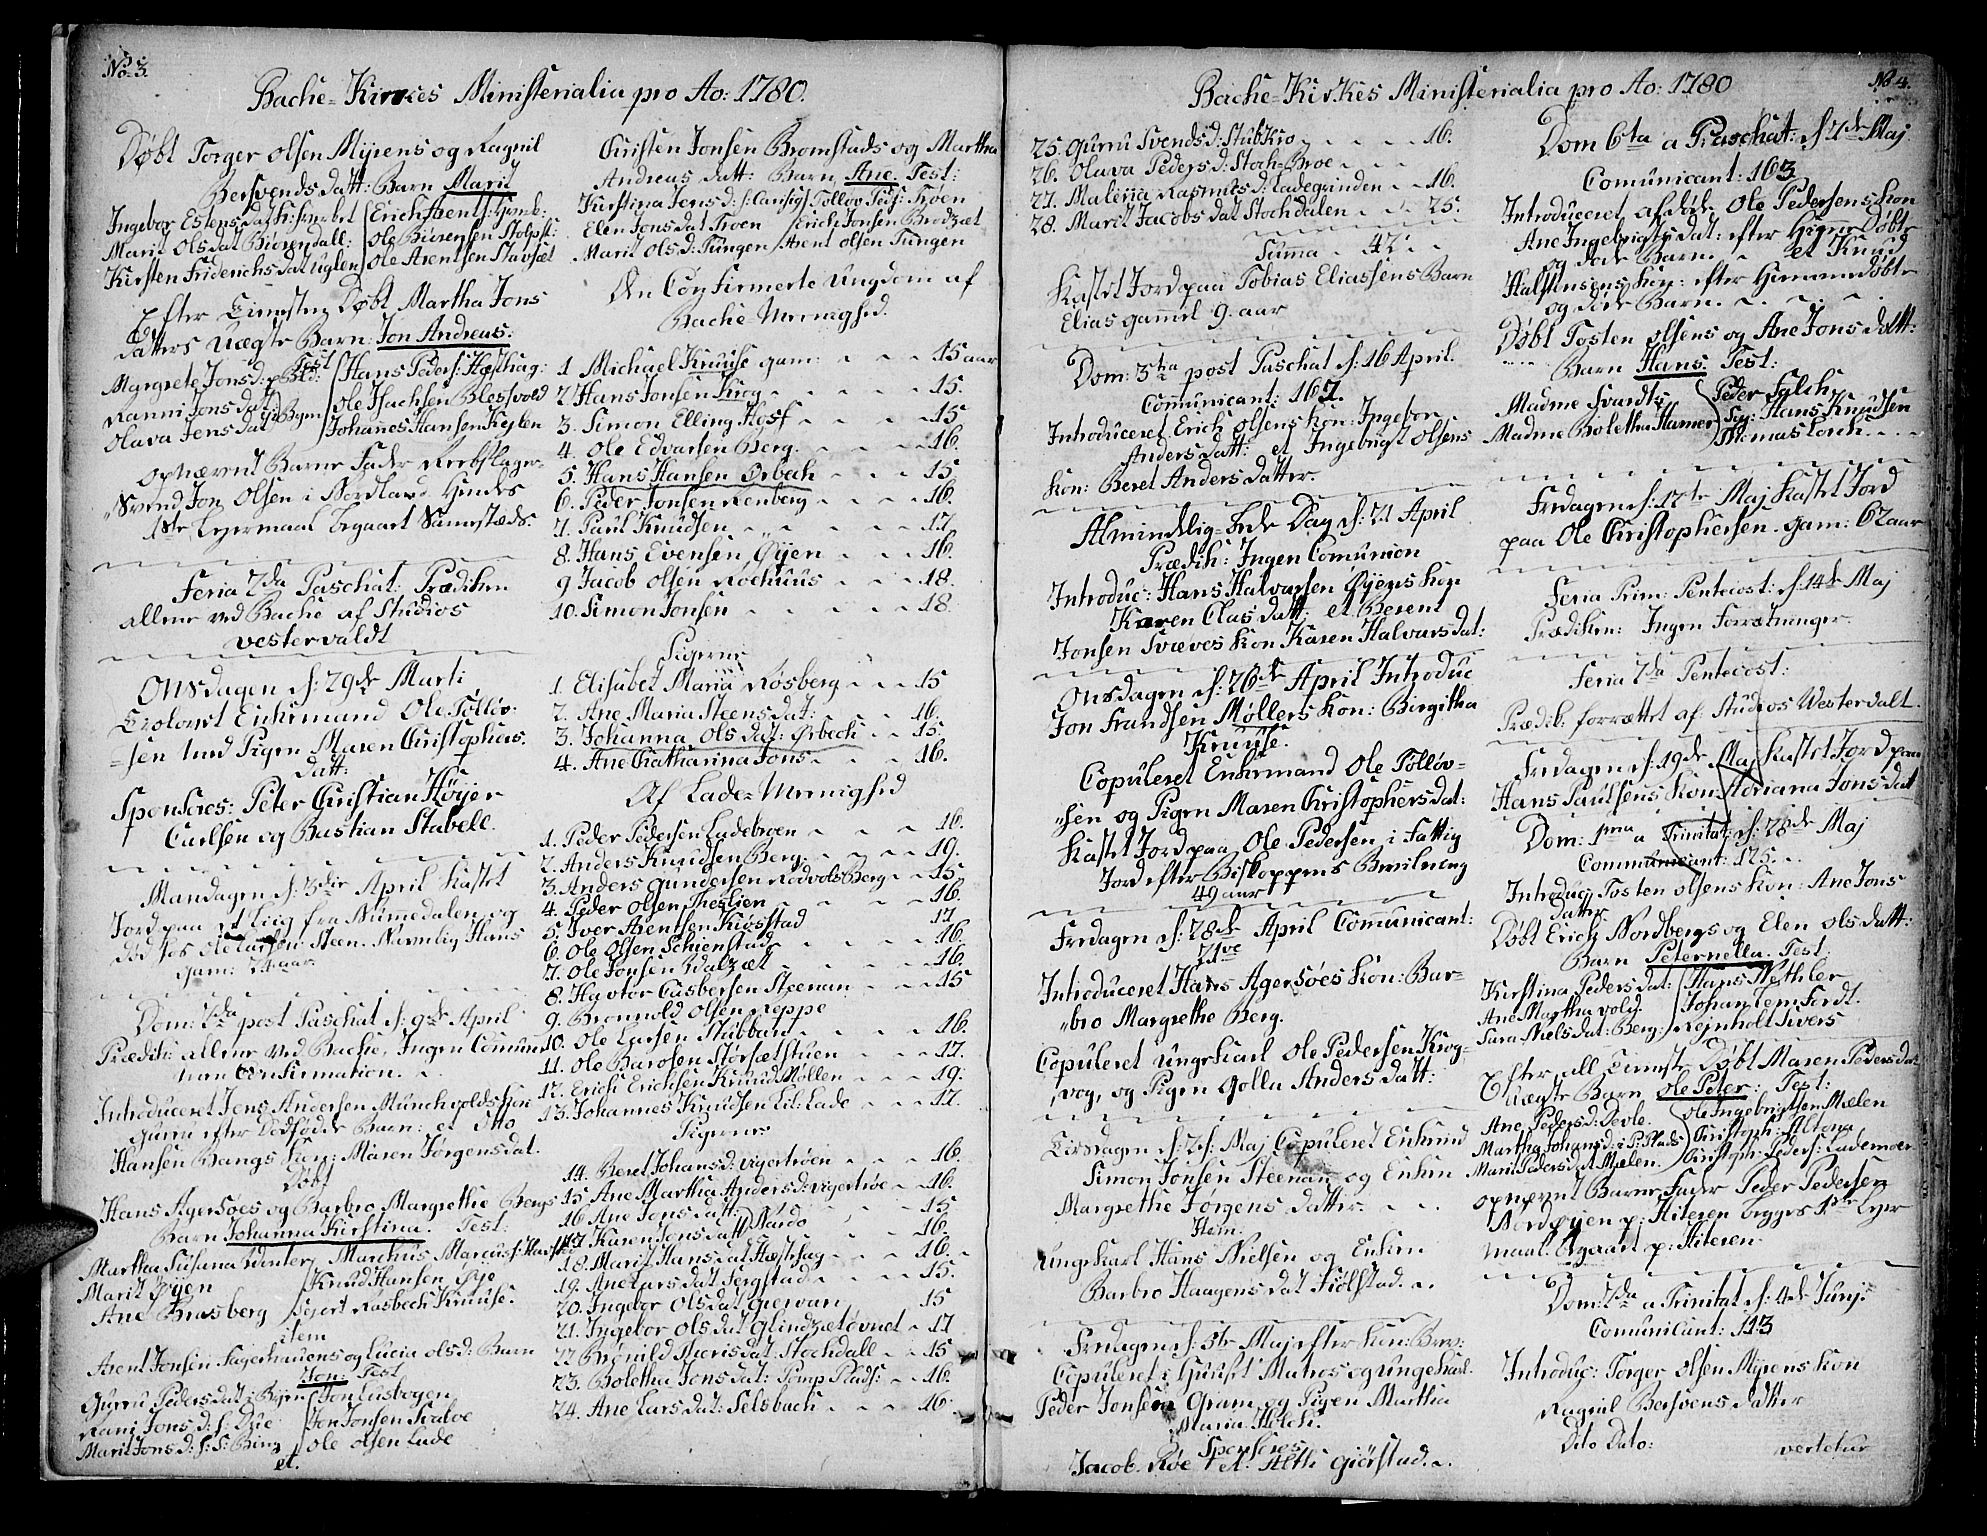 No 3.
Bache-Kirkes Ministerialia pro Ao: 1780.
Døbt Torger Olsen Myrens og Ragnil
Bersvends datt: Barn Marit
Ingebor Estens dat
Marit Olsdat Biörendall:
Kirsten Friderichsdat uglen
Ole Biörensen Stolpst:
Ole Arentsen Stavsæt
Efter Døbt Martha Jons
datters Uægte Barn: Jon Andreas:
Test
Margrete Jons d:
Ranni Jons dat
Olava Jens dat
Hans Peders: Hæsthag:
Ole Isachsen Blesvold
Johannes Hansen
opnævnt Barne Fader Reebslager
Svend Jon Olsen i Nordland Hendes
1ste Leyermaal begaaet Sammestæds.
Feria 2da Paschat: Prædiken
allene ved Bache af Studios
Vestervaldt
Onsdagen d: 29de Marti
Trolovet Enkemand Ole Tollöv-
sen und Pigen Maren Christophers
datt:
Sponsores: Peter Christian Höyer
Carlsen og Bastian Stabell.
Mandagen d: 3die April Kastet
Jord paa et Liig fra Numedalen og
død hos Steen. Navnlig Hans
gam: aar
Dom: 2da post Paschat d: 9de April
Prædik: allene ved Bache, Ingen Comun
men Confirmation.
Introduceret Jens Andersen Münchvolds Kon
Gurru efter Dødfödde Barn: et Otto
Hansen Bangs Kon: Maren Jörgensdat.
Døbt
Hans Agersöes og Barbro Margrethe Bergs
Barn Johanna Kirstina. Test:
Martha Susanna Winter Marchus Marcus: Harsted
Marit Öyen Knud Hansen Öye
Ane Brasberg Siert Rosbech Kruuse.
item
Arent Jonsen Fagerhauens og Lucia ols d: Barn
Jon: Test
Gurru Pedersdat Byen Jon Lusbogen
Rani Jons d: Jon Jonsen
Marit Jons d: Ole olsen Lade
et.
Christen Jonsen Bromstads og Martha
Andreas datt: Barn Ane. Test:
Kirstina Jens d: Tollöv Peds: Troen
Elen Jonsdat Troen Erich Jonsen Brodzæt
Marit Ols d: Tungen Arent olsen Tungen
Den Confirmerte Ungdom af
Bache-Meenighed.
1 Michael Kruuse gam: 15 aar
2 Hans Jonsen Krog 15.
3. Simon Elling Hoff 15
4. Ole Edvartsen Berg. 16.
5. Hans Hansen Ørbech 15
6. Peder Jonsen Renberg 16.
7. Paul Knudsen 17
8. Hans Evensen Øyen 16.
9 Jacob Olsen Rochuus 18.
10. Simon Jonsen 18.
Pigerne
1. Elisabet Maria Rosberg 15
2. Ane Maria Steens dat: 16.
3. Johanna Ols dat: Ørbech 15.
4. Ane Chatharina Jons 16.
Af Lade-Meenighed
1. Peder Pedersen Ladebroen 16.
2. Anders Knudsen Berg. 19.
3. Anders Gundersen Rodvols Berg 15.
4. Peder Olsen Theslien 16.
5. Iver Arentsen Kiösstad 17
6. Ole Olsen Schienstad 16.
7. Ole Jonsen Dalzæt 16.
8. Havtor Eusbersen Steenan 15
9. Bronnold Olsen Reppe
10. Ole Larsen Stubban 16.
11. Ole Barosen Störsætstuen 17.
12. Erich Erichsen Knud Möllen 19.
13. Johannes Knudsen Lil: Lade 17.
Pigerne
14. Beret Johans d: vigertröen 16.
15 Ane Martha Anders d: vigertröe 16.
16 Ane Jons datt: 15.
17 Karen Jons datt Nardo 16.
18. Marit Hans dat Hæsthag 16.
19. Ane Lars dat Tesgstad 15.
20. Ingebor Ols dat giervan 15
21. Ingebor Ols dat Glindzetøvnet 17
22 Brönild Moeris dat: Stochdall 15
23. Boletha Jons dat: Pomp Plads: 16.
24. Ane Lars dat: Selsbach 16.
No 4.
Bache-Kirkes Ministerialia pro Ao: 1780
25. Gurru Svends d: Stubskro 16.
26. Olava Peders d: Stoch-Broe
27. Malena Rasmus d: Ladegrinden 16.
28. Marit Jacobs dat Stochdalen 25.
Summa 42.
Kastet Jord paa Tobias Eliassens Barn
Elias gammel 9. aar
Dom: 3tia post Paschat d: 16 April.
Communicant: 167.
Introduceret Erich Olsens Kon: Ingebor
Anders datt: et Ingebrigt Olsens
Kon: Beret Anders datter.
Almindelig-Bede Dag d: 21 April
Prædik: Ingen Comunion
Introduc: Hans Halvarsen Öyens Kon
Karen Clas datt: et Berent
Jonsen Svæves Kon Karen Halvars dat:
Onsdagen d: 26de April Introduc
Jon Frandsen Møllers Kon: Birgitha
Kruuse.
Copuleret Enkemand Ole Tollöv-
sen og Pigen Maren Christophersdat:
Kastet Jord paa Ole Pedersen i Fattig
Jord efter Biskoppens Bevilning
49 aar
Fredagen d: 28de April Comunicant:
21ve
Introduceret Hans Agersöes Kon: Bar-
bro Margrethe Berg.
Copuleret ungekarl Ole Pedersen Krog-
vog, og Pigen Golla Anders datt:
Tirsdagen d: 2d: Maj Copuleret Enkmd
Simon Jonsen Steenan og Enken
Margrethe Jörgens datter.
Item.
Ungekarl Hans Nielsen og Enken
Barbro Haagens dat Fiölstad.
Fredagen d: 5te Maj efter Kon: Brev:
Copuleret i Huuset Matros og ungekarl
Peder Jonsen Gram og Pigen Martha
Maria Holch.
Sponsores
Jacob Röe et. Atle Giörstad.
Dom 6ta a Paschat: d: 7de Maj
Comunicant: 163
Introduceret afdøde Ole Pedersens Kon
Ane Ingebrigts dat: efter Hiemme Døbte
og døde Barn. et Knud
Halstensens Kon: efter Hiemme Døbte
og døde Barn.
Døbt Tosten Olsens og Ane Jons datt:
Barn Hans. Test:
Madme Svardts
Madme Boletha Hamer
Peder Falch
Sig: Hans Knudsen
Thomas Lorch.
Fredagen d: 12te Maj Kastet Jord
paa Ole Christophersen gam: 62 aar
Feria Prim: Pentecost: d: 14de Maj
Prædiken: Ingen Forrætninger.
Feria 2da Pentecost:
Prædik: forrættet af Studios Westervalt.
Fredagen d: 19de Maj Kastet Jord paa
Hans Paulsens Kon: Adriana Jons dat
Dom: 1ma a Trinitat: d: 28de Maj
Communicant: 125.
Introduc: Tosten olsens Kon: Ane Jons
datter
Døbt Erich Nordbergs og Elen ols datt:
Barn Peternella. Test:
Kirstina Peders dat:
Ane Martha vold.
Sara Niels dat: Berg:
Hans Nethler
Johan Temfordt.
Reynholt Sivers
Efter all Døbt Maren Peders dat
Uægte Barn Ole Peter: Test:
Ane Peders d: Devle.
Martha Johans d: i P: Plads
Marit Peders dat Mælen.
Ole Ingebrigtsen Mælen
Christoph: Altona
Christoph: Peders: Lademoer
opnævnt Barne Fader Peder Pedersen
Nordøyen p: Hiteren begges 1ste Leyer
maal. begaaet p: Hiteren
Dom: 2da a Trinitat d: 4de Junj:
Comunicant: 113
Introduc: Torger Olsen Myrens Kon
Ragnil Bersvens datter
Dito Dato:
vertetur